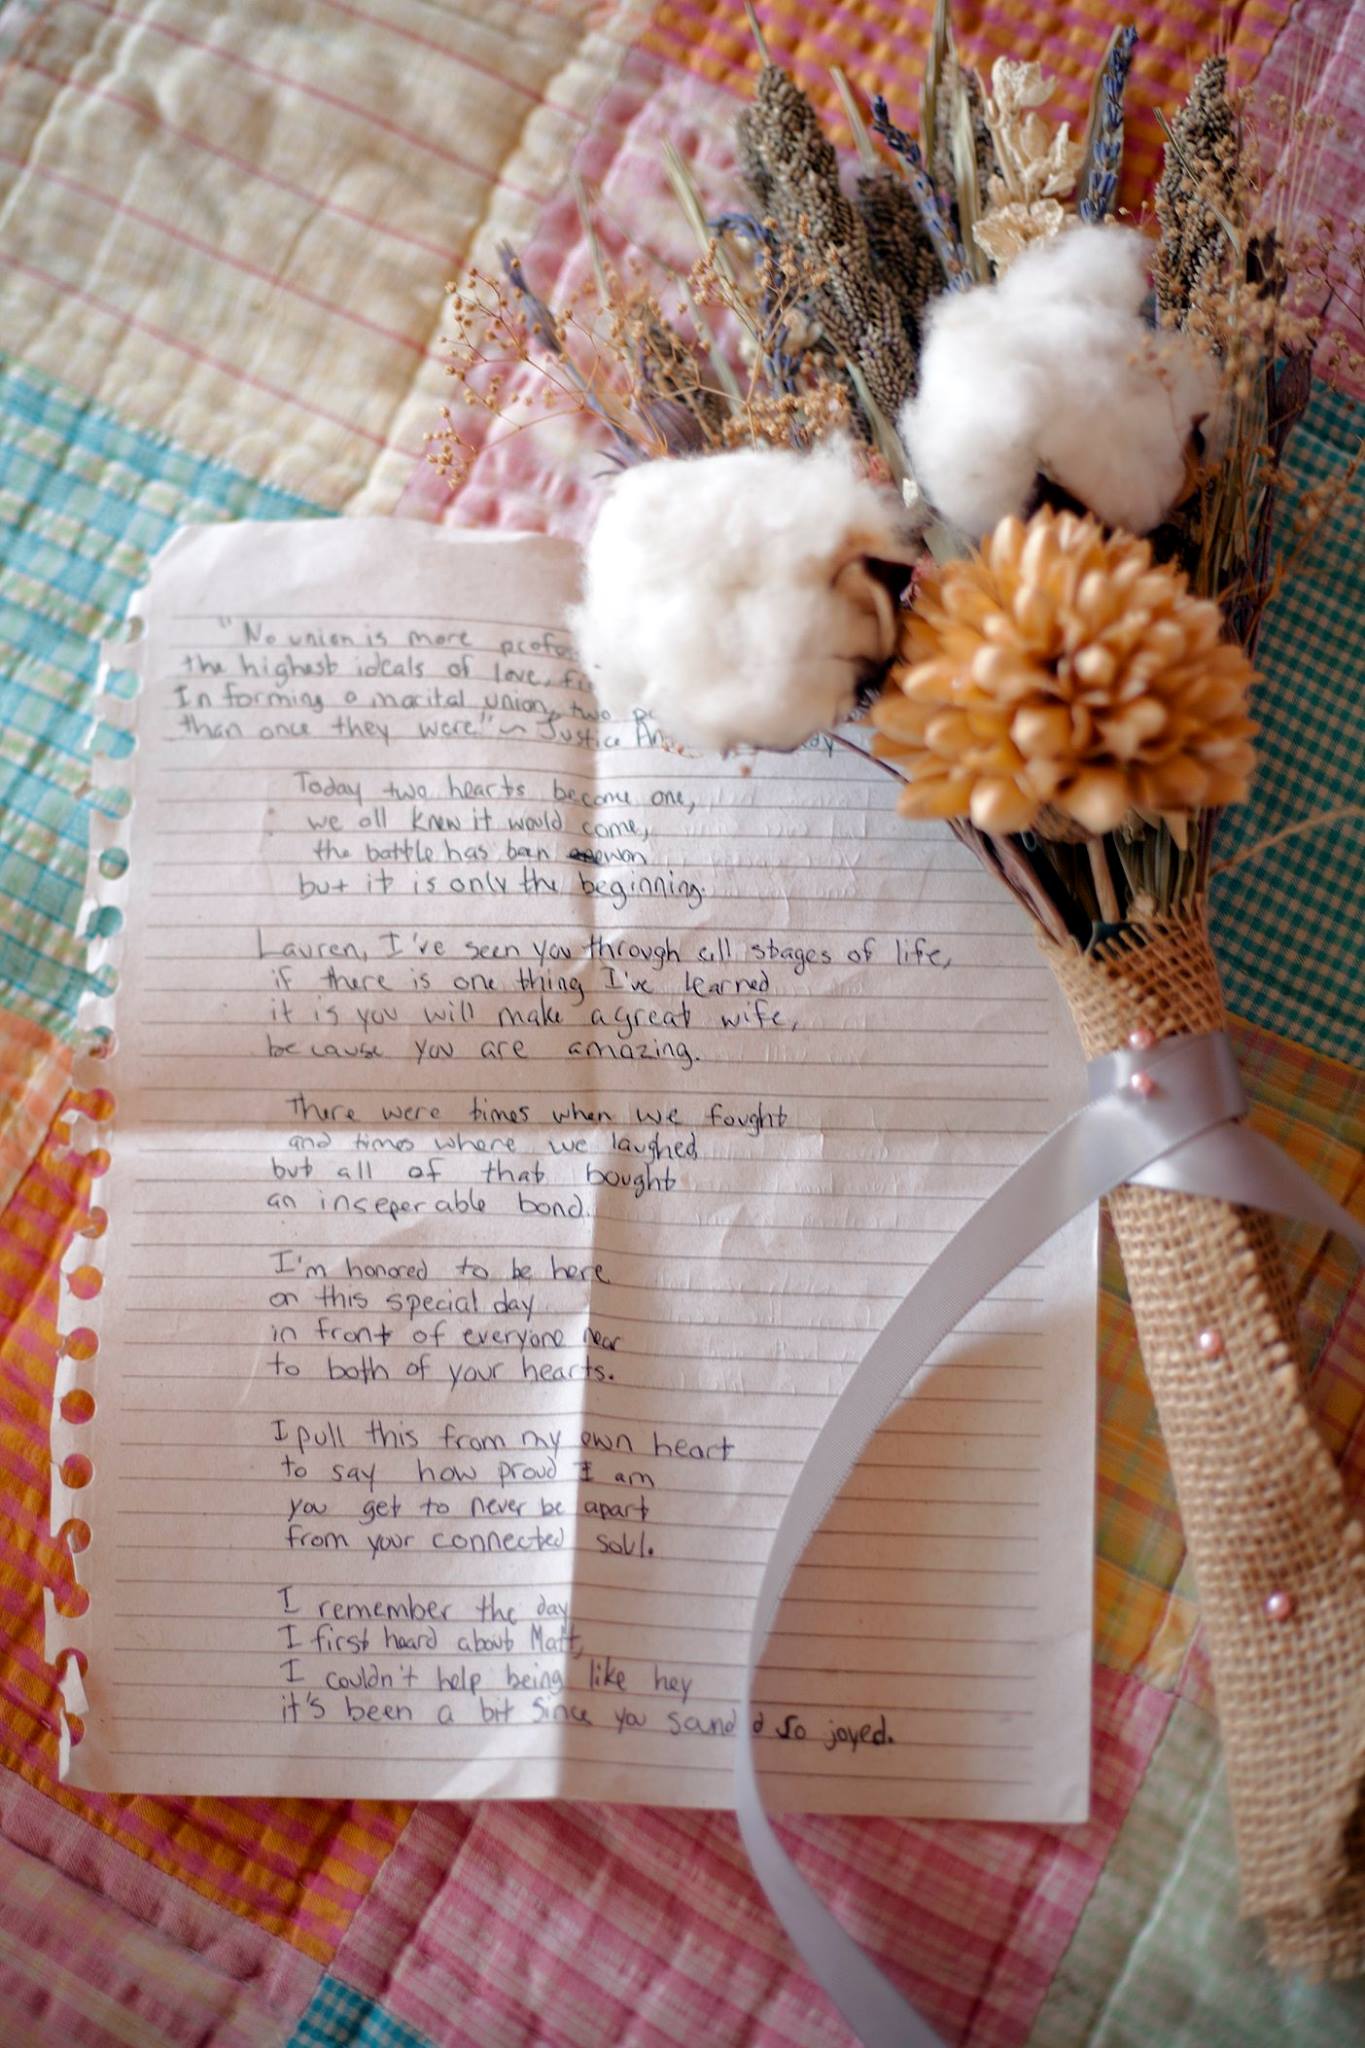 "No union is more
the highest ideals of love,
In forming a marital union, two
than once they were" ~ Justice
Today two hearts become one,
we all knew it would come,
the battle has been won
but it is only the beginning.
Lauren, I've seen you through all stages of life,
if there is one thing I've learned
it is you will make a great wife,
because you are amazing.
There were times when we fought
and times where we laughed
but all of that bought
an inseperable bond.
I'm honored to be here
on this special day
in front of everyone near
to both of your hearts.
I pull this from my own heart
to say how proud I am
you get to never be apart
from your connected soul.
I remember the day
I first heard about Matt,
I couldn't help being like hey
it's been a bit since you so joyed.